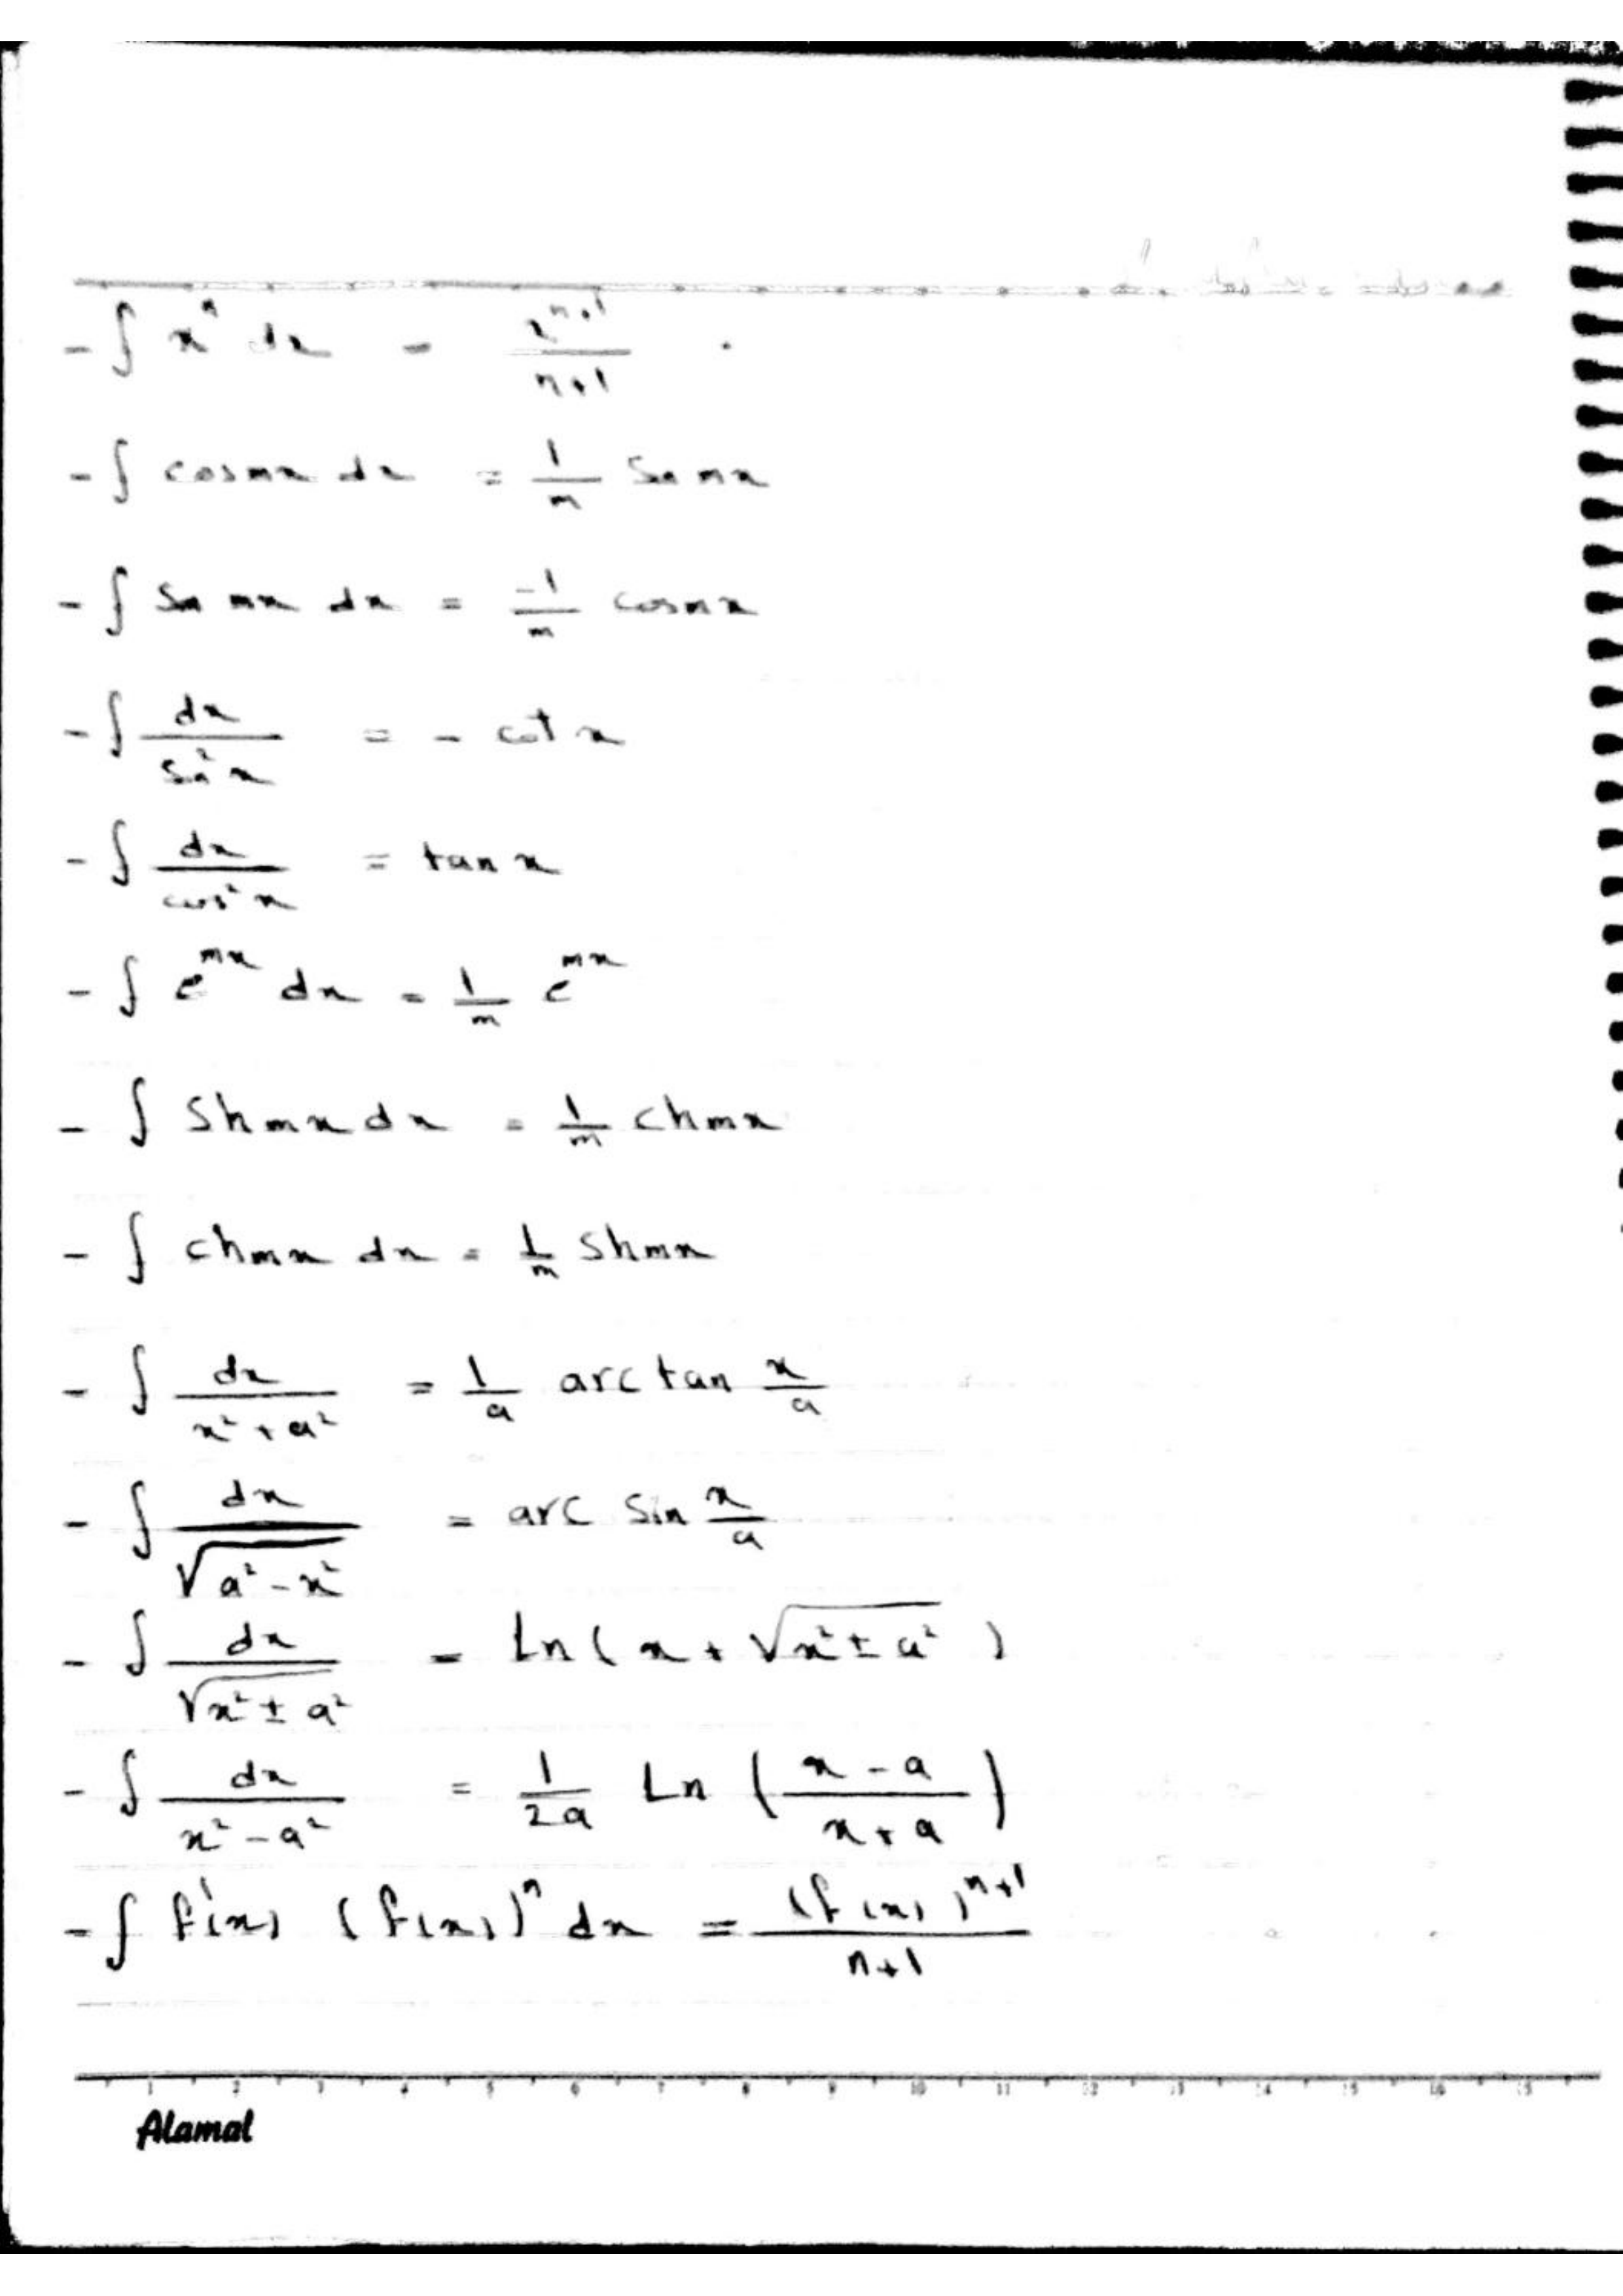 - ∫ xⁿ dx = xⁿ⁺¹/(n+1) .
- ∫ cosmx dx = 1/m Sin mx
- ∫ Sin mx dx = -1/m cosmx
- ∫ dx/(Sin²x) = - cot x
- ∫ dx/(cos²x) = tan x
- ∫ e^(mx) dx = 1/m e^(mx)
- ∫ Shmx dx = 1/m chmx
- ∫ chmx dx = 1/m Shmx
- ∫ dx/(x²+a²) = 1/a arctan x/a
- ∫ dx/√(a²-x²) = arc Sin x/a
- ∫ dx/√(x²±a²) = Ln(x+√(x²±a²))
- ∫ dx/(x²-a²) = 1/2a Ln((x-a)/(x+a))
- ∫ f'(x) (f(x))ⁿ dx = (f(x))ⁿ⁺¹/(n+1)
1 2 3 4 5 6 7 8 9 10 11 12 13 14 15 16
Alamal